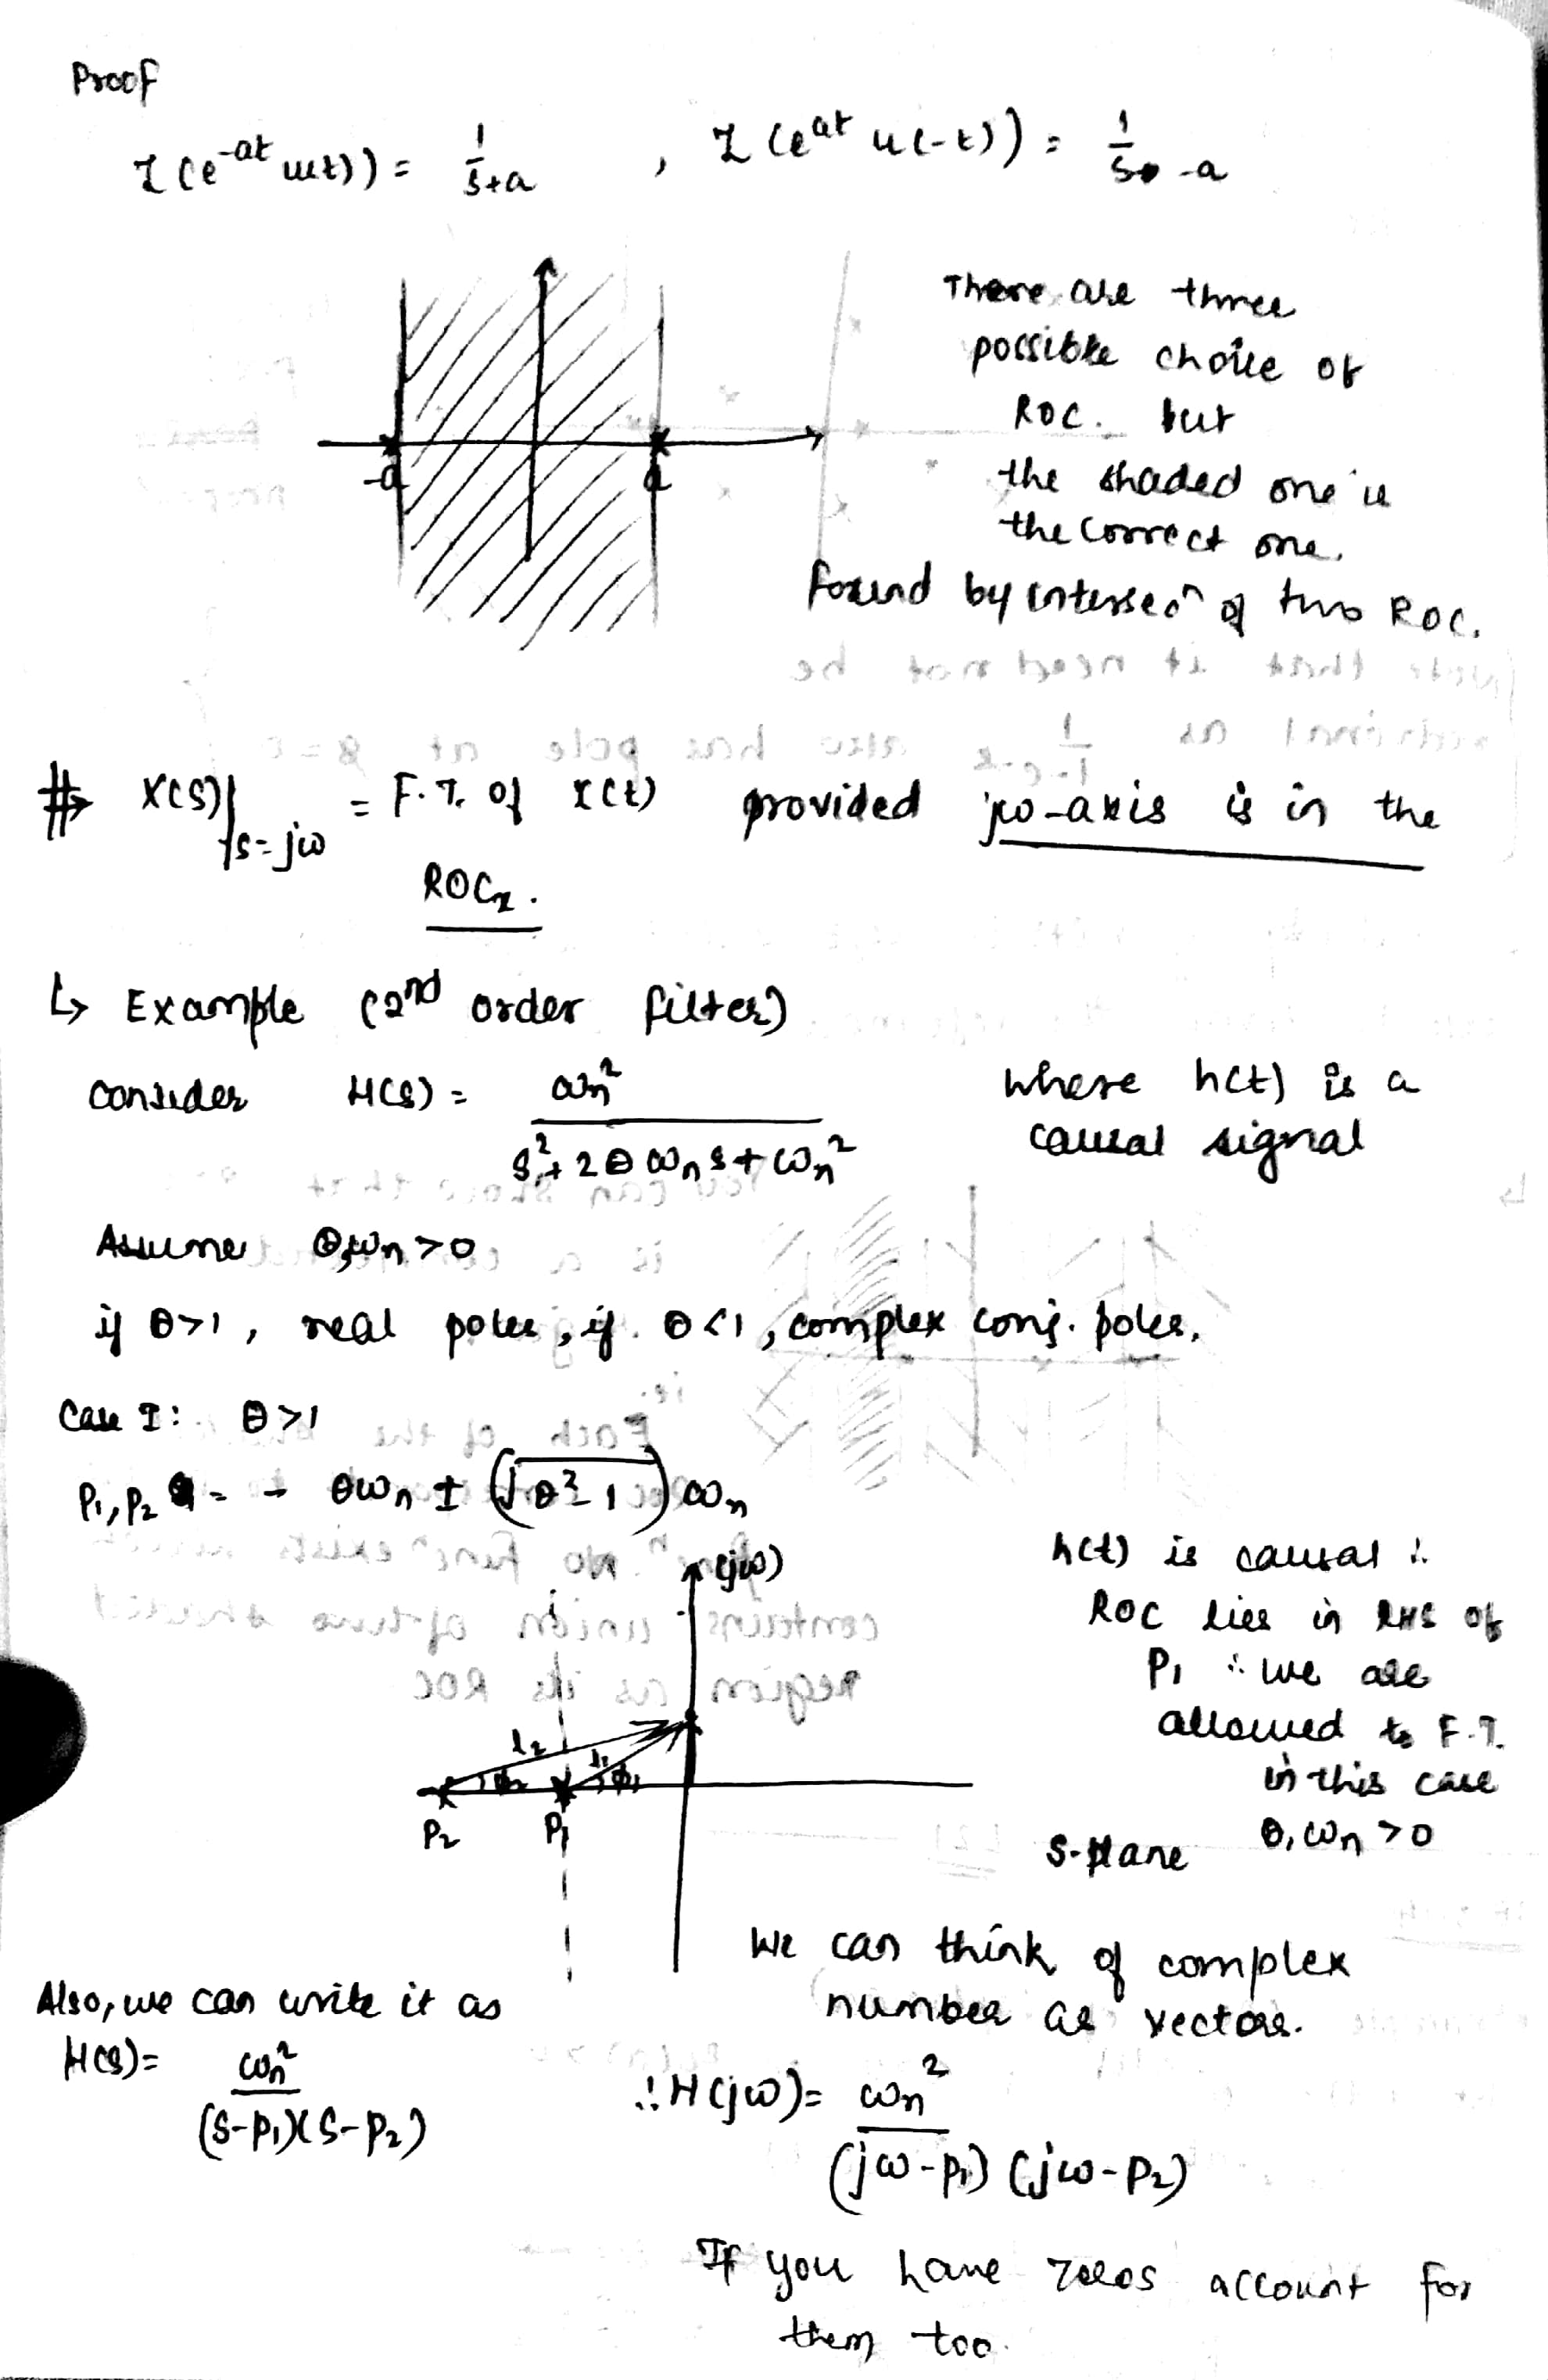 Proof
L(e^-at u(t)) = 1/s+a , L(e^at u(-t)) = 1/s-a
There are three
possible choice of
ROC. but
the shaded one is
the correct one.
found by intersecn of two ROC.
-a a
# X(s)|s=jω = F.T. of x(t) provided jω-axis is in the
ROCx.
↳ Example (2nd order filter)
consider H(s) = ωn² / s²+2θωns+ωn² where h(t) is a
causal signal
Assume θ,ωn>0
if θ>1, real poles, if θ<1, complex conj. poles.
Case I: θ>1
P1,P2 = - θωn ± (√θ²-1)ωn
(jω)
h(t) is causal ∴
ROC lies in RHS of
P1 ∴ we are
allowed to F.T.
in this case
θ, ωn >0
l2 l1
ϕ2 ϕ1
P2 P1
S-plane
We can think of complex
number as vectors.
Also, we can write it as
H(s)= ωn² / (s-P1)(s-P2)
∴ H(jω)= ωn² / (jω-P1) (jω-P2)
If you have zeros account for
them too.